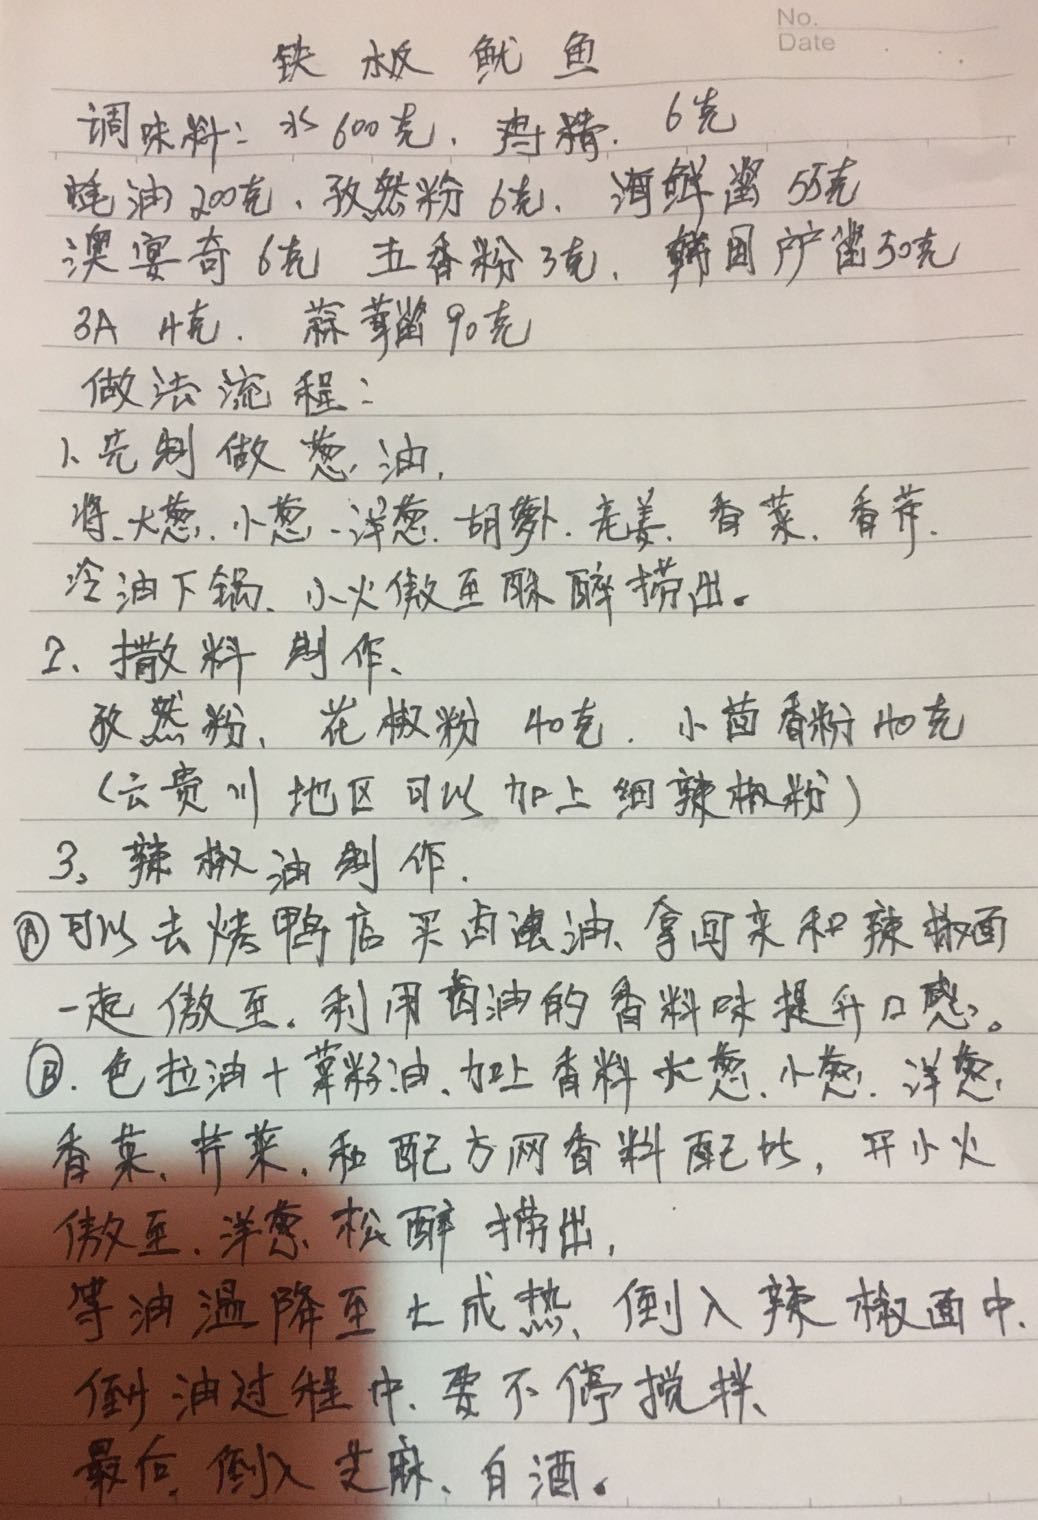 No.
Date
铁板鱿鱼
调味料：水600克、鸡精、6克
蚝油200克、孜然粉6克、海鲜酱55克
澳宴奇6克 五香粉3克、韩国产酱50克
3A 4克. 蒜蓉酱90克
做法流程：
1、先制做葱油,
将、大葱、小葱、洋葱、胡萝卜、老姜、香菜、香芹、
冷油下锅、小火傲至酥醉捞出。
2、撒料制作、
孜然粉、花椒粉 40克. 小茴香粉40克
(云贵川地区可以加上细辣椒粉)
3、辣椒油制作.
Ⓐ可以去烤鸭店买卤油、拿回来和辣椒面
一起傲至.利用卤油的香料味提升口感。
Ⓑ.色拉油+菜籽油、加上香料大葱、小葱、洋葱,
香菜、芹菜、和配方网香料配比,开小火
傲至、洋葱松醉捞出,
等油温降至七成热、倒入辣椒面中、
倒油过程中、要不停搅拌、
最后,倒入芝麻、白酒。